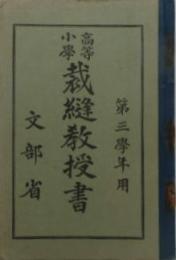 第三學年用
高等
小學
裁縫教授書
文部省